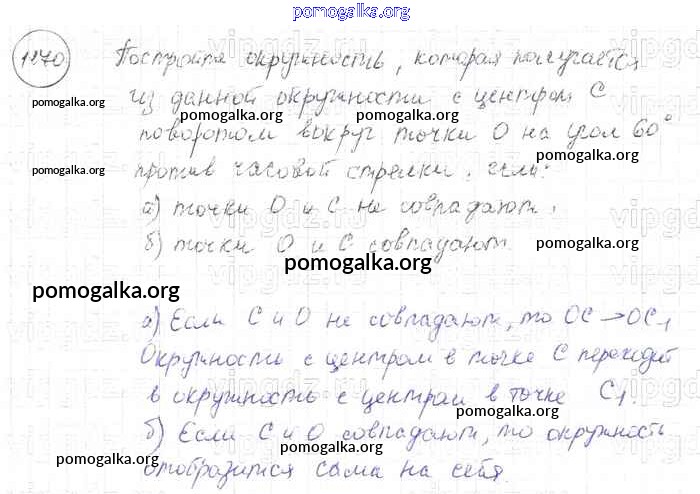 pomogalka.org
1270 Постройте окружность, которая получается
pomogalka.org
из данной окружности с центром С
pomogalka.org
поворотом вокруг точки О на угол 60°
pomogalka.org
против часовой стрелки, если:
pomogalka.org
а) точки О и С не совпадают;
б) точки О и С совпадают.
pomogalka.org
pomogalka.org
pomogalka.org
а) Если С и О не совпадают, то ОС → ОС₁
Окружность с центром в точке С переходит
в окружность с центром в точке С₁.
pomogalka.org
б) Если С и О совпадают, то окружность
pomogalka.org
отобразится сама на себя.
pomogalka.org